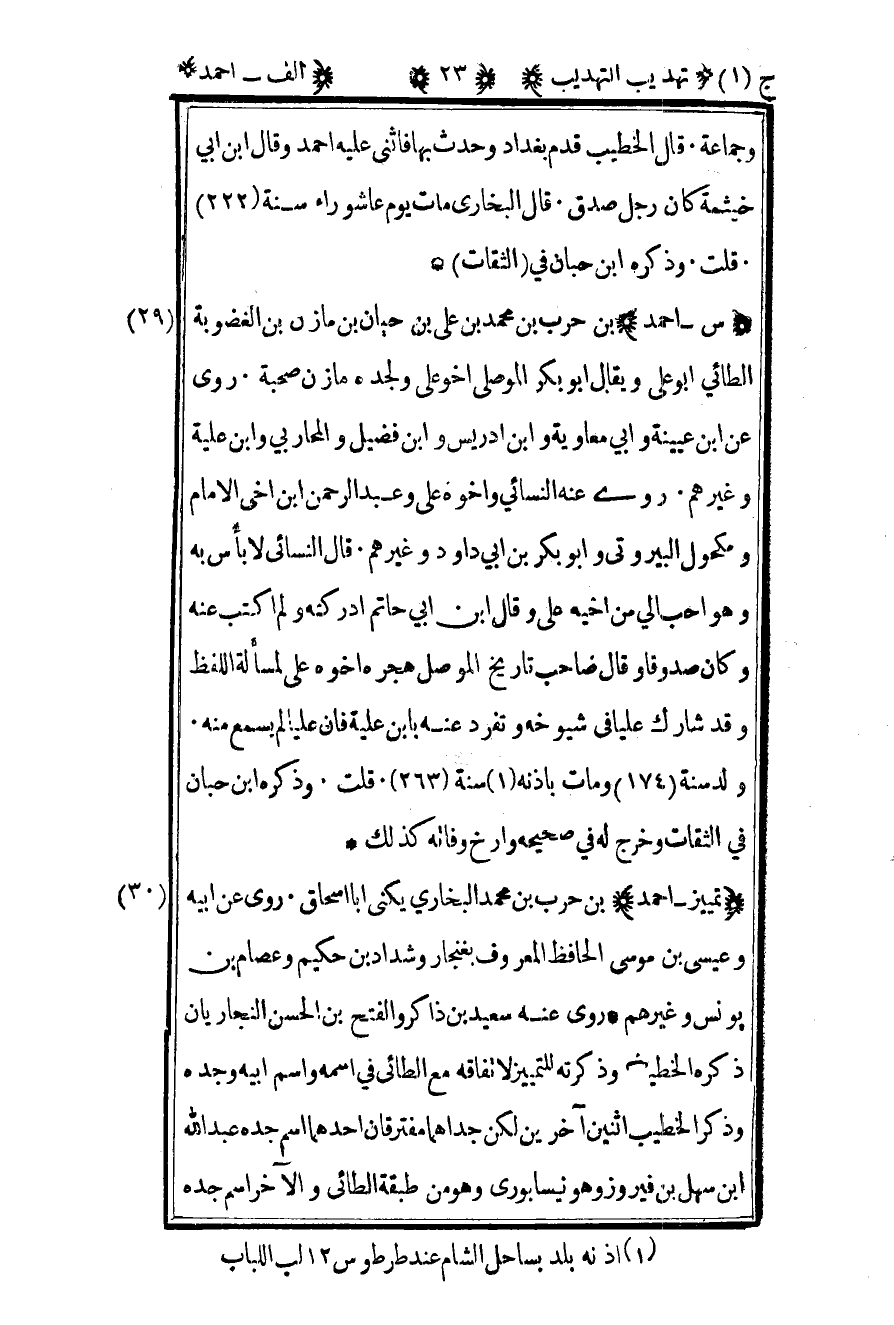 ج (١) ﴿ تهذيب التهذيب ﴾ ﴿ ٢٣ ﴾ ﴿ الف ـ احمد ﴾
وجماعة · قال الخطيب قدم بغداد وحدث بها فاثنى عليه احمد وقال ابن ابي
خيثمة كان رجل صدق · قال البخارى مات يوم عاشوراء سنة (٢٢٢)
· قلت · وذكره ابن حبان في (الثقات) *
﴿ س ـ احمد ﴾ بن حرب بن محمد بن على بن حيان بن مازن بن الغضوبة (٢٩)
الطائي ابو على ويقال ابو بكر الموصلى اخو على ولجده مازن صحبة · روى
عن ابن عيينة و ابي معاوية و ابن ادريس و ابن فضيل و المحاربي وابن علية
وغيرهم · روى عنه النسائي واخوه على وعبد الرحمن ابن اخى الامام
و مكحول البيروتى و ابو بكر بن ابي داود وغيرهم · قال النسائى لا بأس به
وهو احب الي من اخيه على وقال ابن ابي حاتم ادركته ولم اكتب عنه
وكان صدوقا وقال صاحب تاريخ الموصل هجره اخوه على لمسألة اللفظ
وقد شارك عليا فى شيوخه وتفرد عنه بابن علية فان عليا لم يسمع منه ·
ولد سنة (١٧٤) ومات باذنه (١) سنة (٢٦٣) · قلت · وذكره ابن حبان
في الثقات وخرج له في صحيحه وارخ وفاته كذلك *
﴿ تمييز ـ احمد ﴾ بن حرب بن محمد البخاري يكنى ابا اسحاق · روى عن ابيه (٣٠)
وعيسى بن موسى الحافظ المعروف بغنجار وشداد بن حكيم وعصام بن
يونس وغيرهم * روى عنه سعيد بن ذاكر والفتح بن الحسن النجاريان
ذكره الخطيب وذكرته للتمييز لاتفاقه مع الطائى في اسمه واسم ابيه وجده
وذكر الخطيب اثنين آخرين لكن جداهما مفترقان احدهما اسم جده عبد الله
ابن سهل بن فيروز وهو نيسابورى وهو من طبقة الطائى و الآخر اسم جده
(١) اذنه بلد بساحل الشام عند طرطوس ١٢ لب اللباب